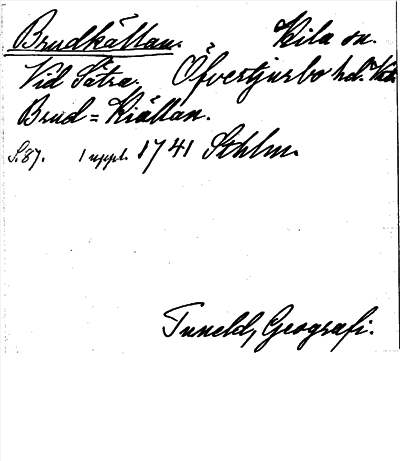 Brudkällan. Kila sn.
Vid Sätra. Öfvertjurbo hd. Vstm.
Brud=Kiällan.
S. 87. 1 uppl. 1741 Sthlm.
Tuneld, Geografi.